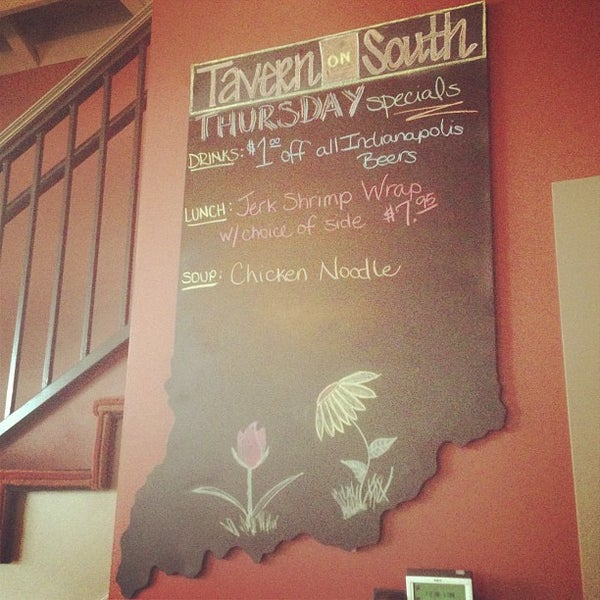 Tavern ON South
THURSDAY specials
DRINKS: $1.00 off all Indianapolis
Beers
LUNCH: Jerk Shrimp Wrap
w/ choice of side $7.95
SOUP: Chicken Noodle